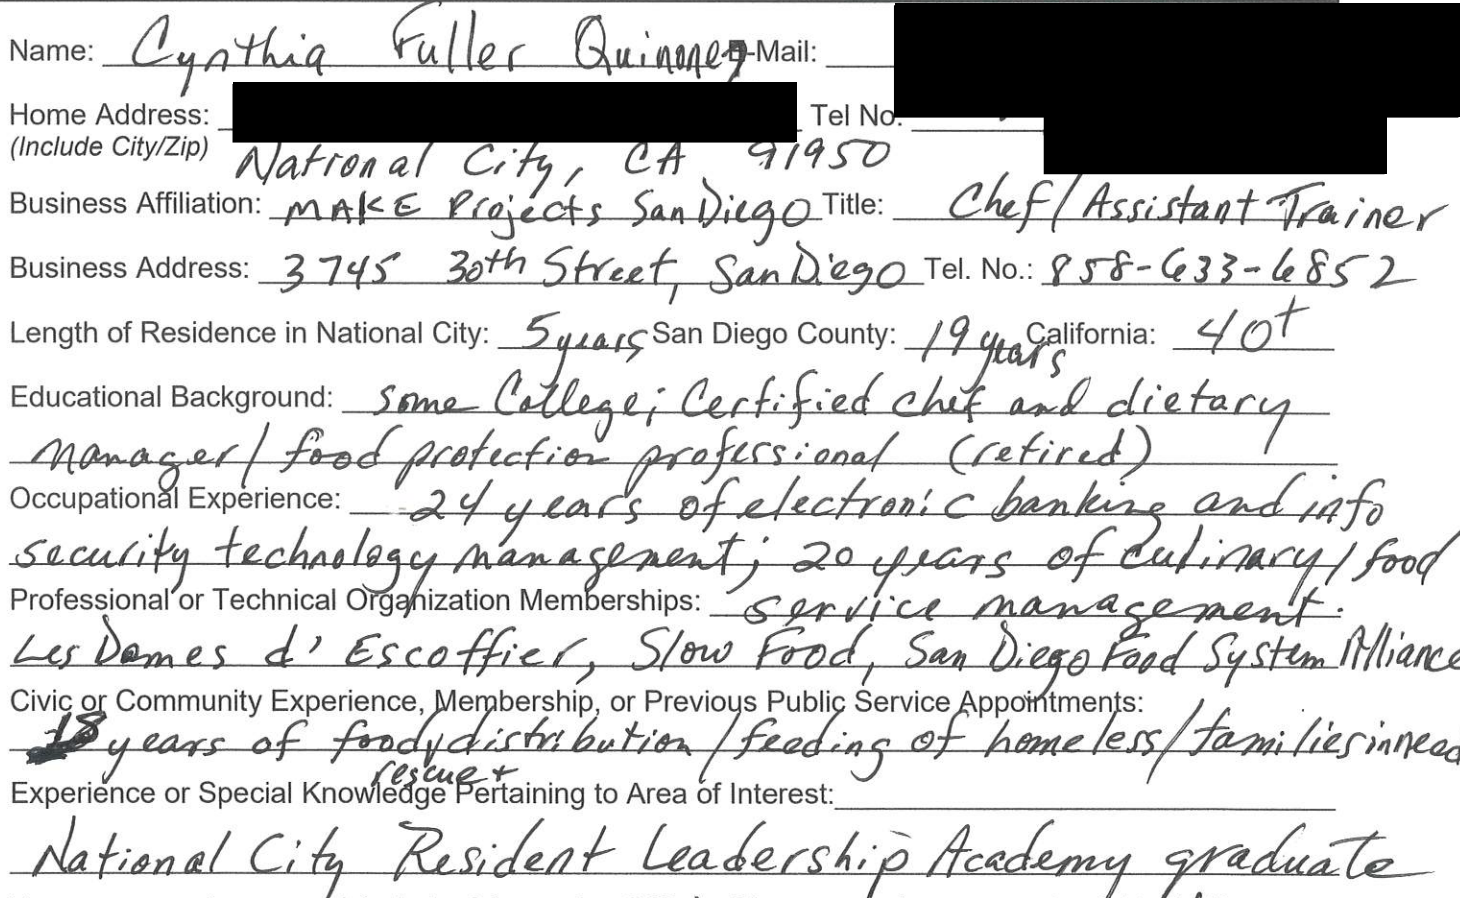 Name: Cynthia Fuller Quinonez E-Mail:
Home Address: Tel No:
(Include City/Zip) National City, CA 91950
Business Affiliation: MAKE Projects San Diego Title: Chef/Assistant Trainer
Business Address: 3745 30th Street, San Diego Tel. No.: 858-633-6852
Length of Residence in National City: 5 years San Diego County: 19 years California: 40+
Educational Background: some College; Certified chef and dietary
manager/food protection professional (retired)
Occupational Experience: 24 years of electronic banking and info
security technology management; 20 years of culinary/food
Professional or Technical Organization Memberships: service management.
Les Dames d'Escoffier, Slow Food, San Diego Food System Alliance
Civic or Community Experience, Membership, or Previous Public Service Appointments:
18 years of food distribution/feeding of homeless/families in need
rescue +
Experience or Special Knowledge Pertaining to Area of Interest:
National City Resident Leadership Academy graduate